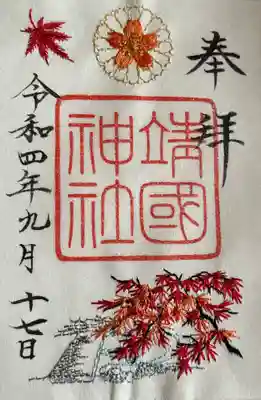 奉拝
靖國
神社
令和四年九月十七日